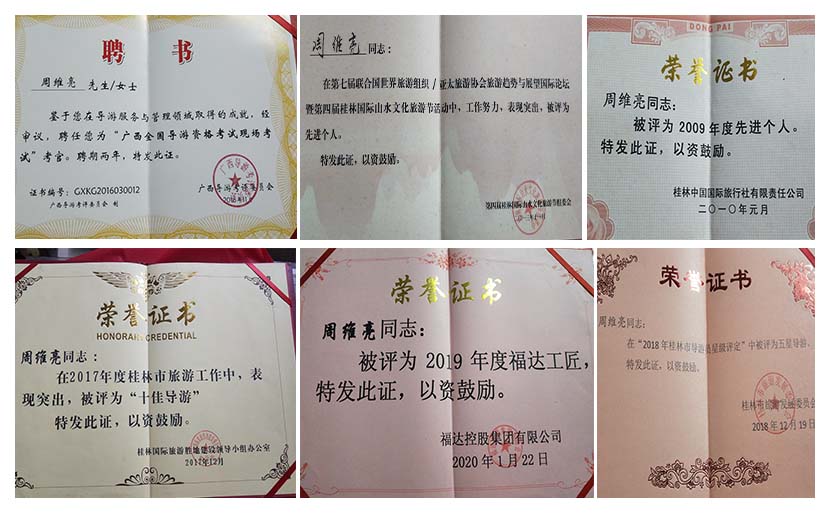 聘 书
周维亮 先生/女士
鉴于您在导游服务与管理领域取得的成就，经
审议，聘任您为“广西全国导游资格考试现场考
试”考官。聘期两年，特发此证。
证书编号：GXKG2016030012
广西导游考评委员会
广西导游考评委员会 制
周维亮同志：
在第七届联合国世界旅游组织/亚太旅游协会旅游趋势与展望国际论坛
暨第四届桂林国际山水文化旅游节活动中，工作努力，表现突出，被评为
先进个人。
特发此证，以资鼓励。
第四届桂林国际山水文化旅游节组委会
DONG PAI
荣誉证书
周维亮同志：
被评为2009年度先进个人。
特发此证，以资鼓励。
桂林中国国际旅行社有限责任公司
二〇一〇年元月
荣誉证书
HONORARY CREDENTIAL
周维亮同志：
在2017年度桂林市旅游工作中，表
现突出，被评为“十佳导游”
特发此证，以资鼓励。
桂林国际旅游胜地建设领导小组办公室
2017年12月
荣誉证书
周维亮同志：
被评为 2019 年度福达工匠，
特发此证，以资鼓励。
福达控股集团有限公司
2020 年 1 月 22 日
荣誉证书
周维亮同志：
在“2018年桂林市导游员星级评定”中被评为五星导游，
特发此证，以资鼓励。
桂林市旅游发展委员会
2018年12月19日